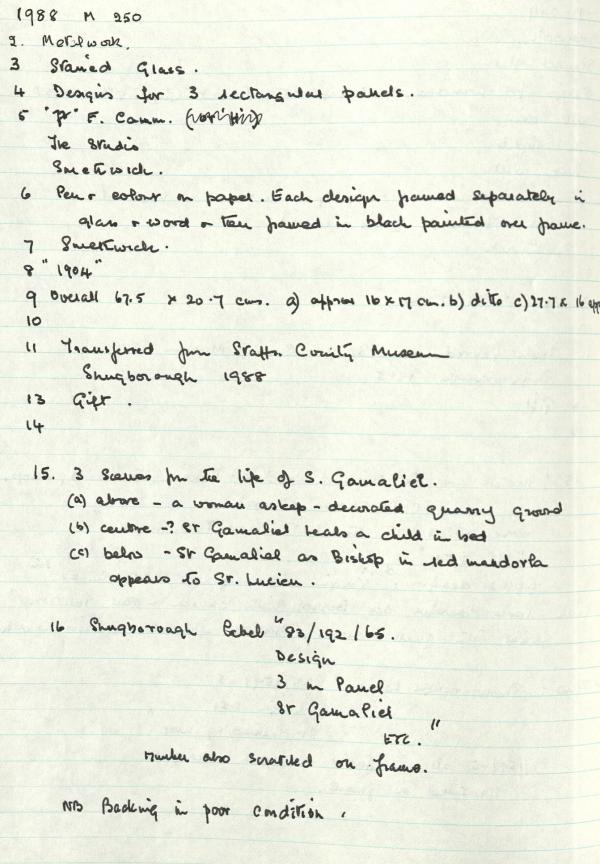 1988 M 250
2. Metalwork.
3 Stained Glass.
4 Designs for 3 rectangular panels.
5 "pr" F. Camm.
The Studio
Smethwick.
6 Pen & colour on paper. Each design framed separately in
glass & wood & then framed in black painted over frame.
7 Smethwick.
8 "1904"
9 Overall 67.5 x 20.7 cms. a) approx 16 x 17 cm. b) ditto c) 27.7 x 16 app
10
11 Transferred from Staffs County Museum
Shugborough 1988
13 Gift.
14
15. 3 scenes from the life of S. Gamaliel.
(a) above - a woman asleep - decorated quarry ground
(b) centre -? St Gamaliel heals a child in bed
(c) below - St Gamaliel as Bishop in red mandorla
appears to St. Lucien.
16 Shugborough Label "83/192/65.
Design
3 in Panel
St Gamaliel
ETC."
Number also scratched on frame.
NB Backing in poor condition.